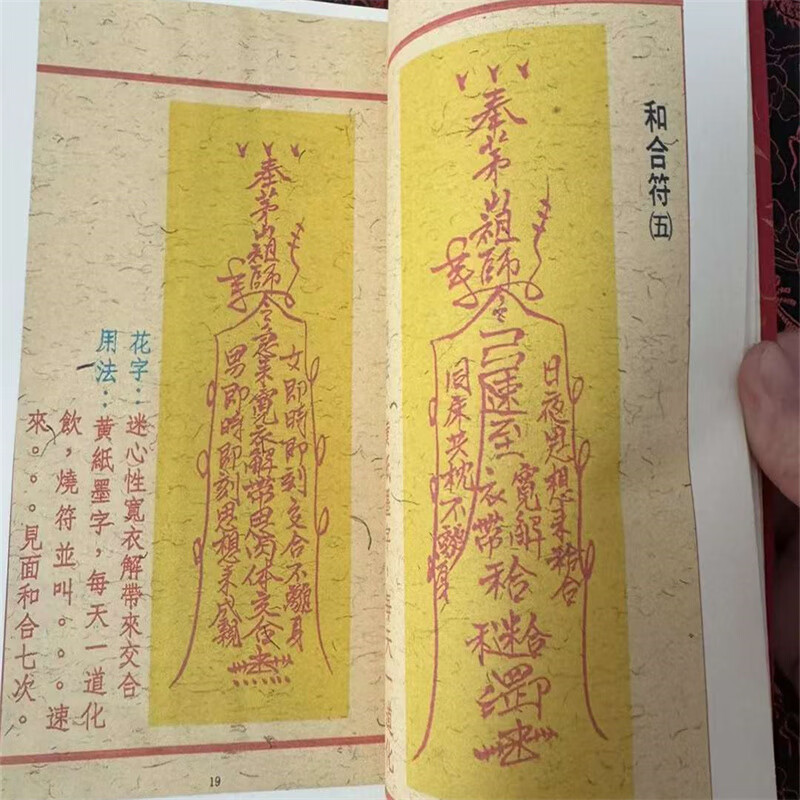 和合符㈤
奉茅山祖師
令
日夜思想来和合
弓速至
寬解
衣帶
同床共枕不離身
奉茅山祖師
令急来寬衣解帶思肉体交合
女即時即刻交合不離身
男即時即刻思想来成親
花字：迷心性寬衣解帶來交合
用法：黃紙墨字，每天一道化
飲，燒符並叫。。。速
來。。。見面和合七次。
19